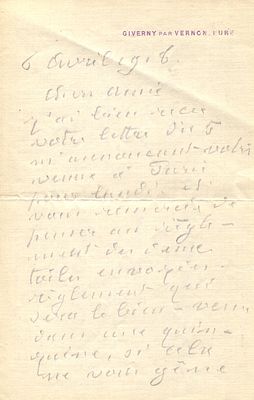 GIVERNY PAR VERNON, EURE
6 Avril 1916.
Cher ami
j'ai bien reçu
votre lettre du 5
m'annonçant votre
venue à Paris
pour lundi et
vous remercie de
penser au règle-
ment des
toiles envoyées
règlement qui
sera le bien-venu
dans une quin-
zaine, si cela
ne vous gêne